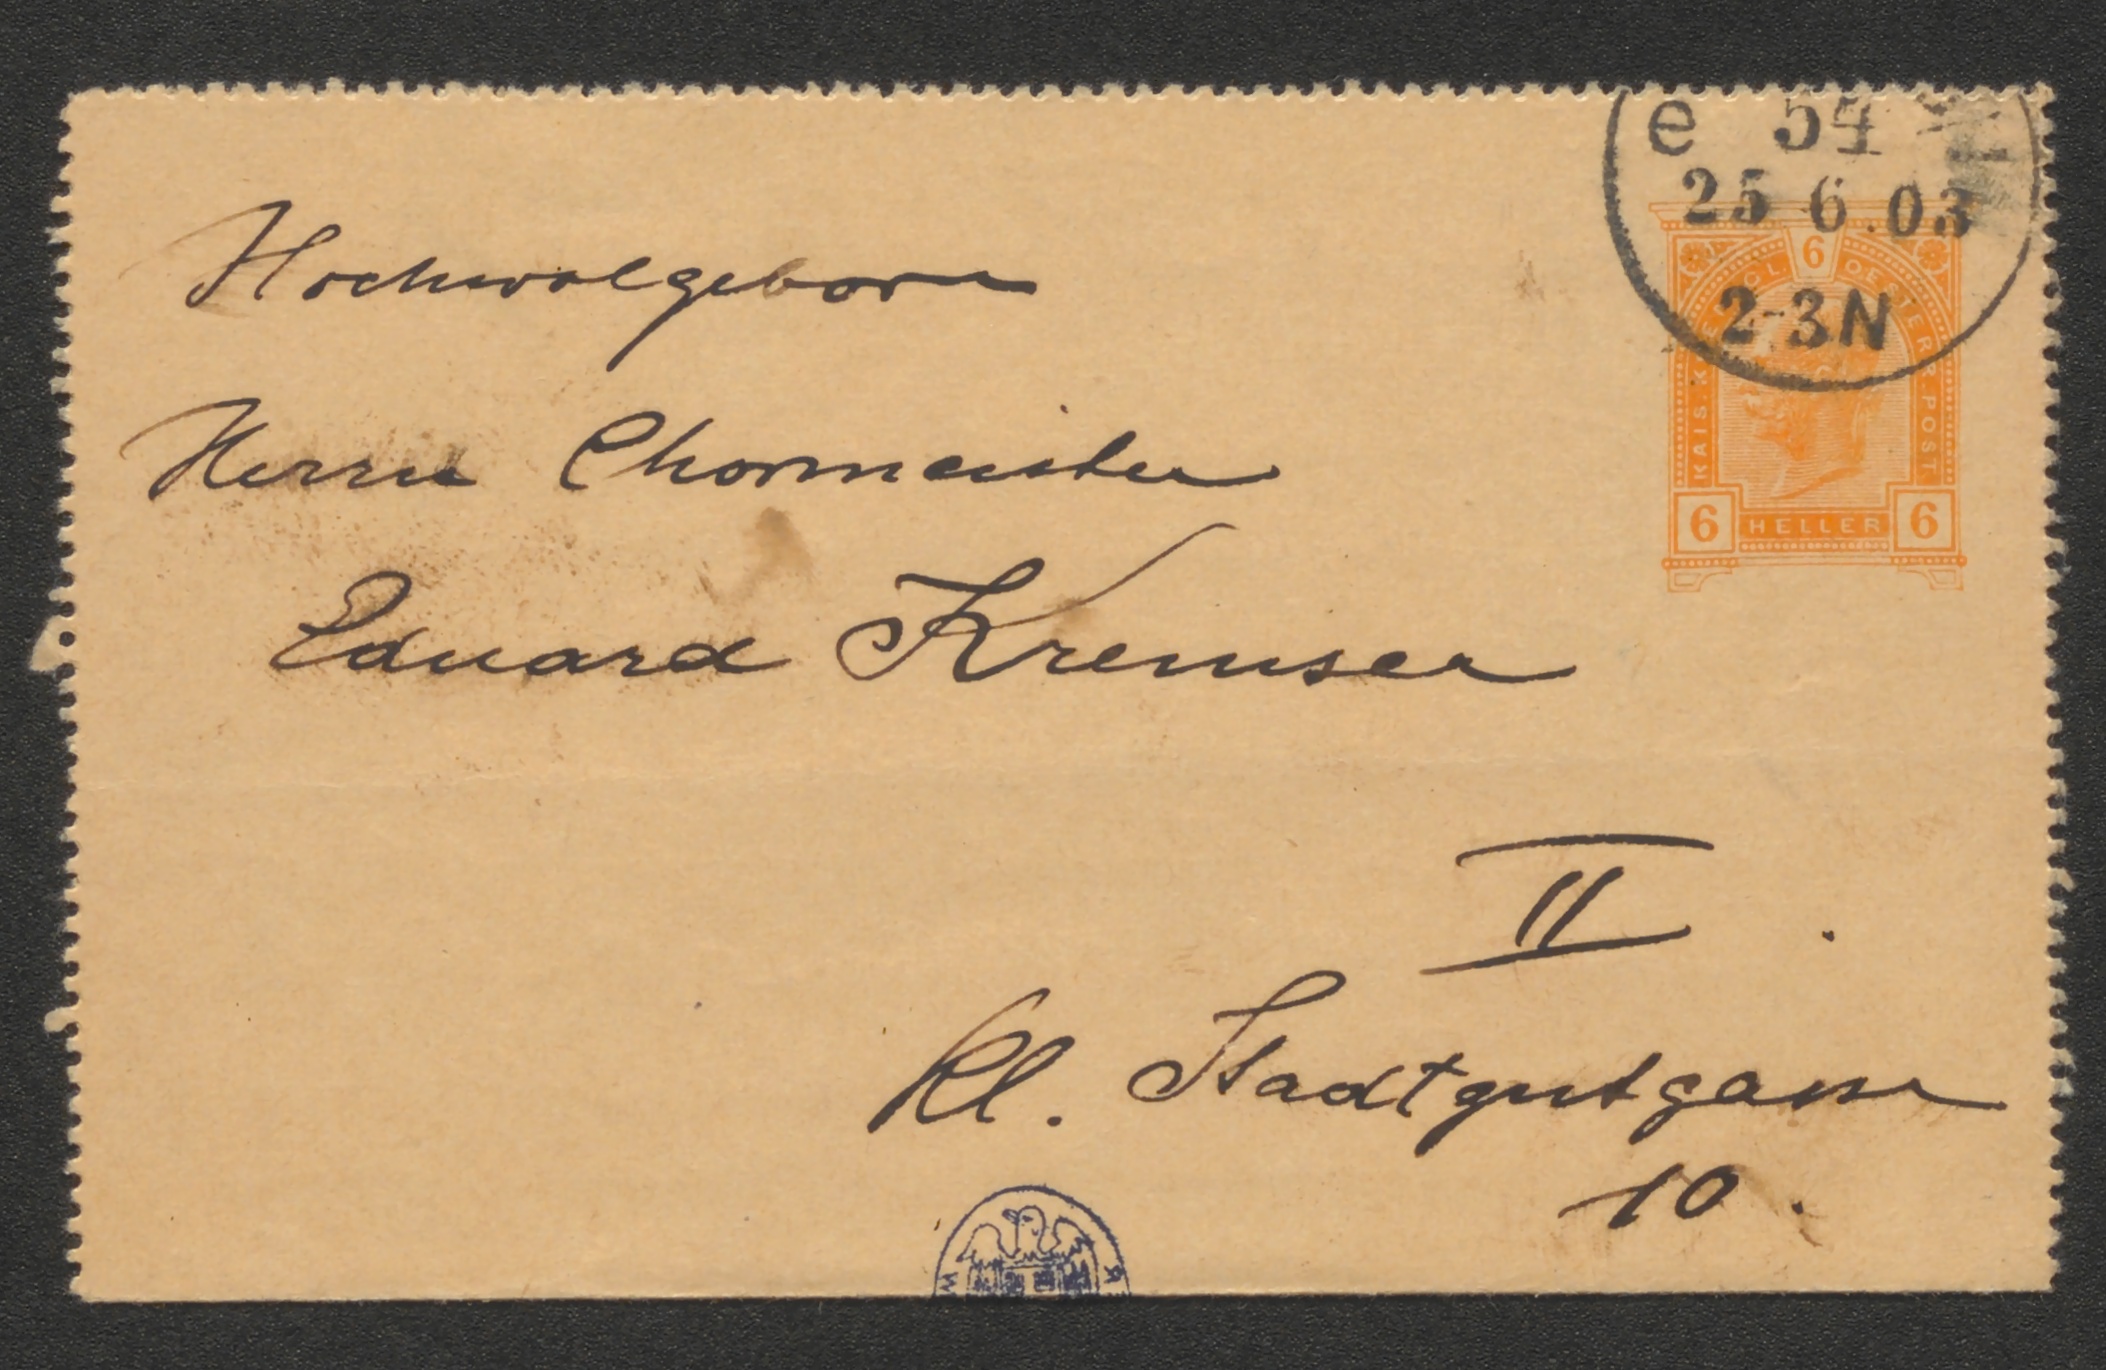 e 54
25 6.03
2-3N
6
KAIS. KÖNIGL. OESTERR. POST
6 HELLER 6
Hochwolgeboren
Herrn Chormeister
Eduard Kremser
II.
Kl. Stadtgutgasse
10.